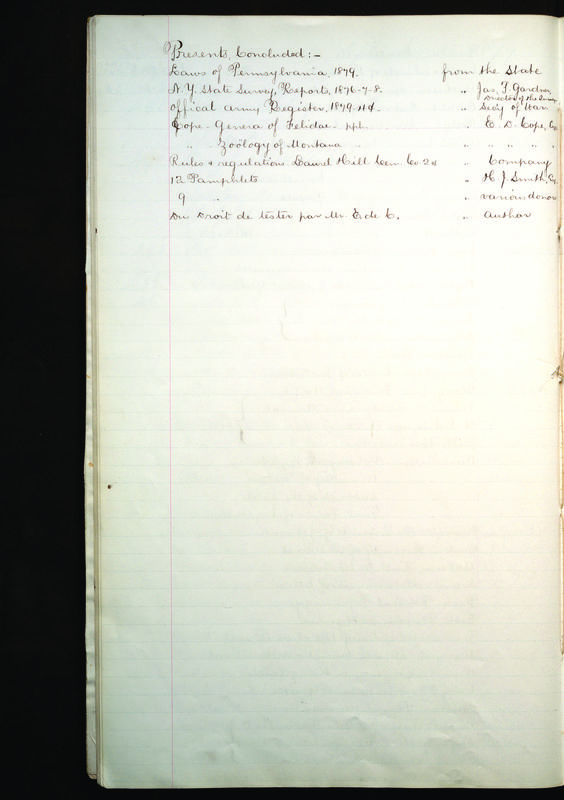 Presents, Concluded:-
Laws of Pennsylvania, 1879. from the State
N.Y. State Survey, Reports, 1876-7-8. " Jas. T. Gardner, Director of the Survey
Offical Army Register, 1879, " Sec'y of War
Cope - Genera of Felidae - ppt. " E. D. Cope, Esq
" - Zoölogy of Montana " " " " " "
Rules & regulations Laurel Hill Cem. Co. " Company
12 Pamphlets " H. J. Smith, Esq.
9 " " various donors
Du Droit de tester par Mr. E. de C. " Author